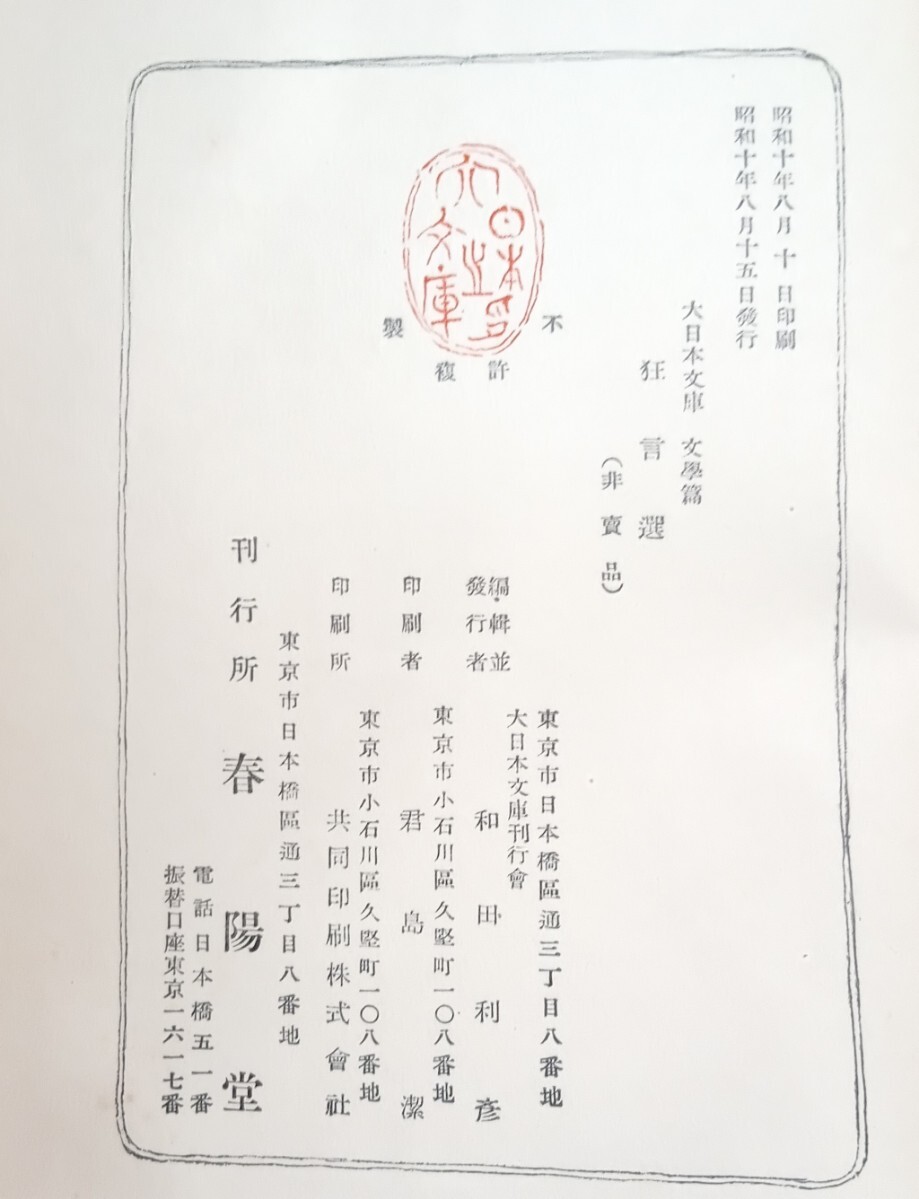 昭和十年八月十日印刷
昭和十年八月十五日發行
大日本文庫 文學篇
狂言選
(非賣品)
不許複製
大日本文庫之印
東京市日本橋區通三丁目八番地
大日本文庫刊行會
編輯並
發行者 和田利彥
東京市小石川區久堅町一〇八番地
印刷者 君島潔
東京市小石川區久堅町一〇八番地
印刷所 共同印刷株式會社
東京市日本橋區通三丁目八番地
刊行所 春陽堂
電話日本橋五一番
振替口座東京一六一七番